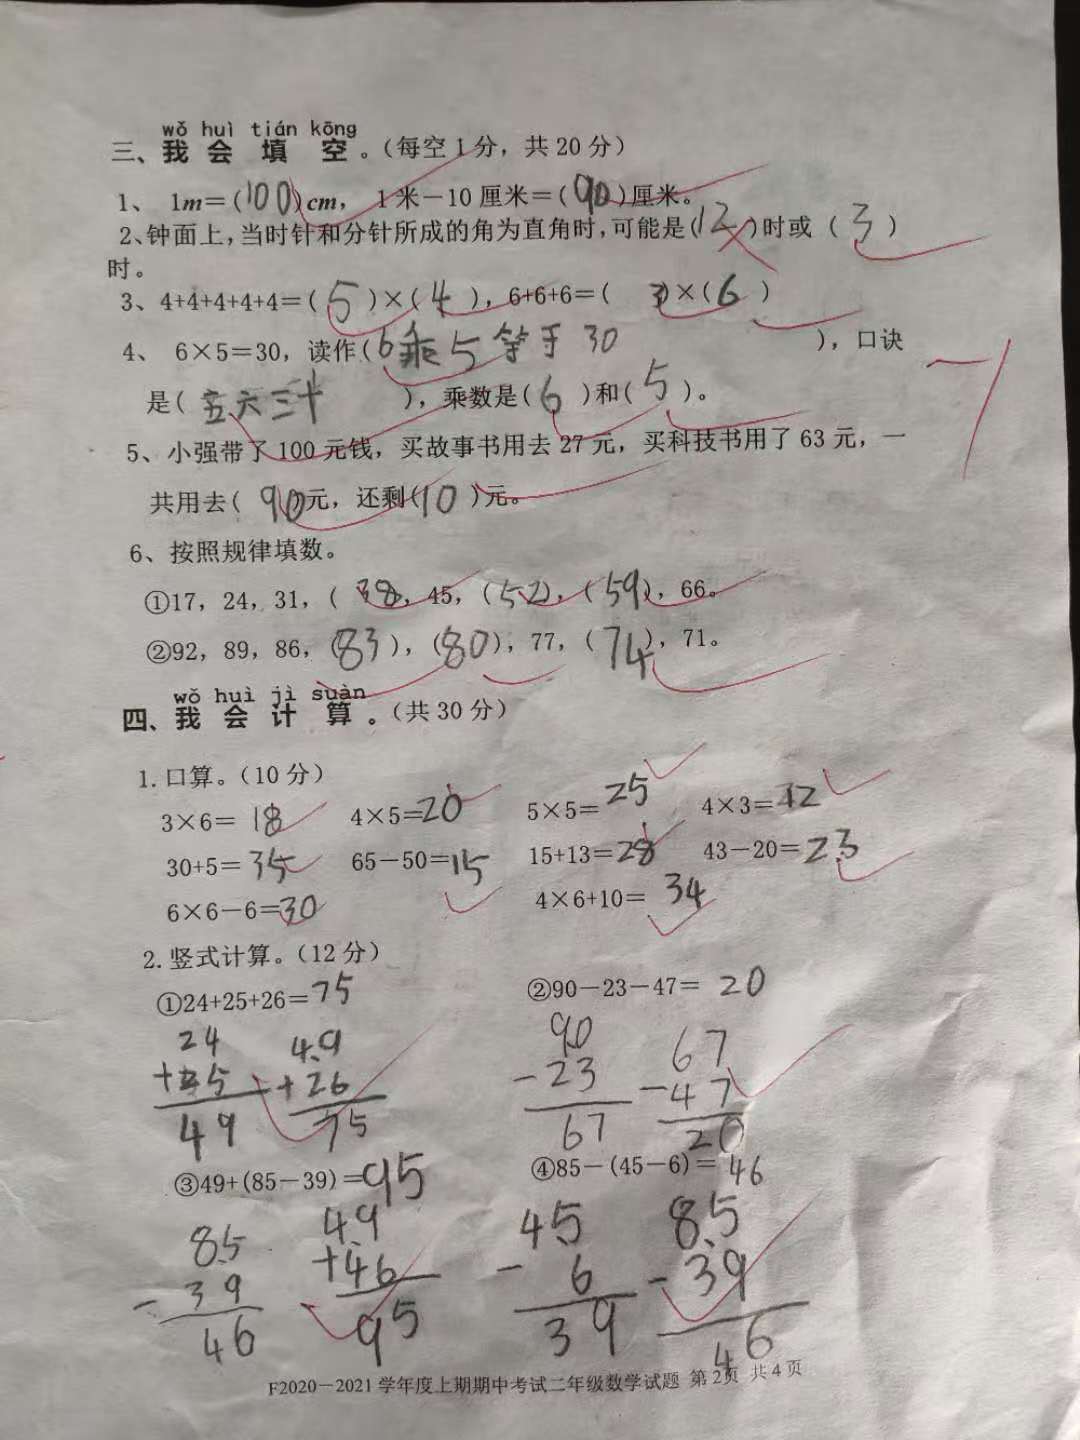 wǒ huì tián kōng
三、我 会 填 空 。（每空 1 分，共 20 分）
1、 1m＝(100)cm， 1 米－10 厘米＝( 90 )厘米。
2、钟面上，当时针和分针所成的角为直角时，可能是(12 )时或 ( 3 )
时。
3、4+4+4+4+4＝( 5 )×( 4 )，6+6+6＝( 3)×( 6 )
4、 6×5＝30，读作(6乘5等于30 )，口诀
是( 五六三十 )，乘数是( 6 )和( 5 )。
5、小强带了 100 元钱，买故事书用去 27 元，买科技书用了 63 元，一
共用去( 90)元，还剩(10 )元。
6、按照规律填数。
①17，24，31，( 38)，45，(52)，( 59)，66。
②92，89，86，(83 )，(80 )，77，( 74)，71。
wǒ huì jì suàn
四、我 会 计 算 。（共 30 分）
1.口算。（10 分）
3×6＝ 18 4×5＝20 5×5＝ 25 4×3＝12
30+5＝35 65－50＝15 15+13＝28 43－20＝23
6×6－6＝30 4×6+10＝ 34
2.竖式计算。（12 分）
①24+25+26＝75 ②90－23－47＝ 20
24 49 90 67
+25 +26 －23 －47
49 75 67 20
③49+(85－39)＝95 ④85－(45－6)＝ 46
85 49 45 85
－39 +46 － 6 －39
46 95 39 46
F2020－2021 学年度上期期中考试二年级数学试题 第 2页 共 4 页